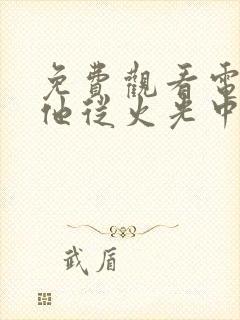 免費觀看電
他從火光中
武盾